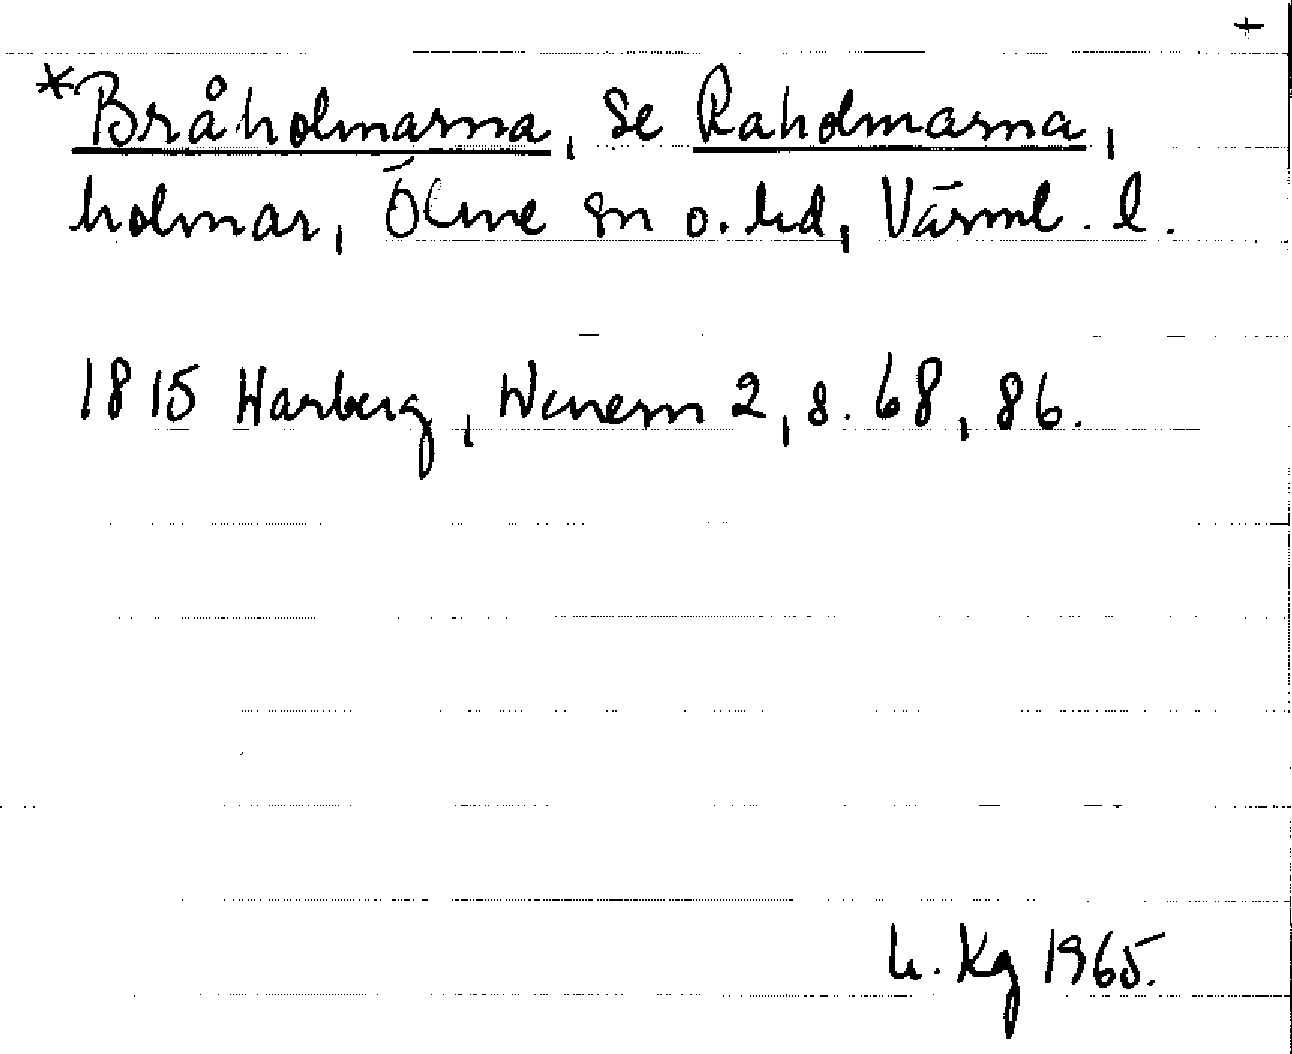 +
*Bråholmarna, se Raholmarna,
holmar, Ölme sn o. hd, Värml. l.
1815 Warberg, Wenern 2, s. 68, 86.
h. Kg 1965.